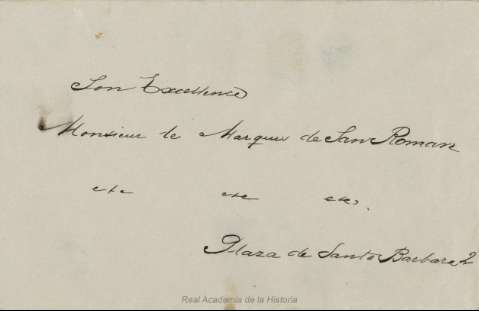 Son Excellence
Monsieur le Marquis de San Roman
etc etc etc.
Plaza de Santa Barbara 2
Real Academia de la Historia